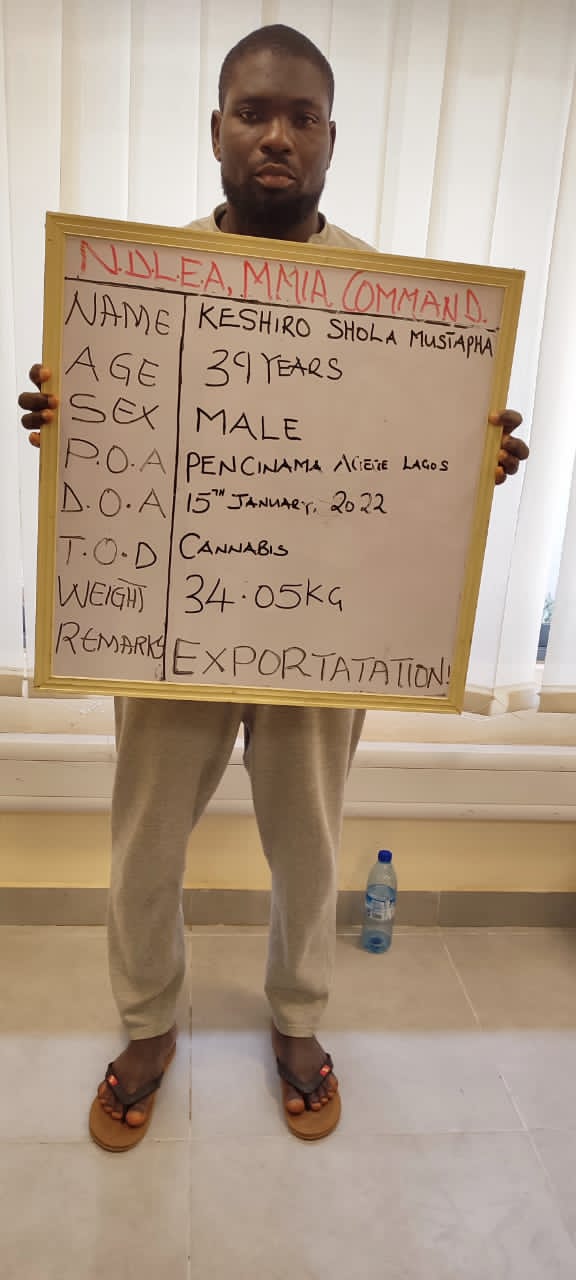 N.D.L.E.A, MMIA COMMAND.
NAME KESHIRO SHOLA MUSTAPHA
AGE 39 YEARS
SEX MALE
P.O.A PENCINAMA AGEGE LAGOS
D.O.A 15TH JANUARY, 2022
T.O.D CANNABIS
WEIGHT 34.05KG
REMARKS EXPORTATATION!